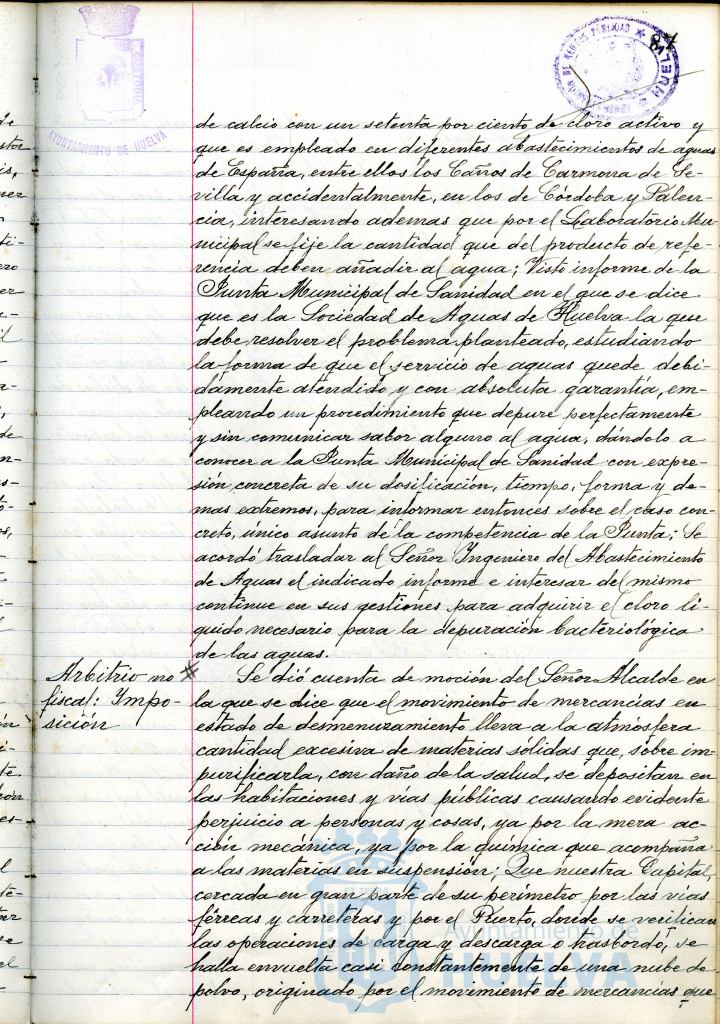 AYUNTAMIENTO DE HUELVA
de calcio con un setenta por ciento de cloro activo y
que es empleado en diferentes abastecimientos de aguas
de España, entre ellos los Caños de Carmona de Se-
villa y accidentalmente, en los de Córdoba y Palen-
cia, interesando ademas que por el Laboratorio Mu-
nicipal se fije la cantidad que del producto de refe-
rencia deben añadir al agua; Visto informe de la
Junta Municipal de Sanidad en el que se dice
que es la Sociedad de Aguas de Huelva la que
debe resolver el problema planteado, estudiando
la forma de que el servicio de aguas quede debi-
damente atendido y con absoluta garantía, em-
pleando un procedimiento que depure perfectamente
y sin comunicar sabor alguno al agua, dándolo a
conocer a la Junta Municipal de Sanidad con expre-
sión concreta de su dosificación, tiempo, forma y de-
mas extremos, para informar entonces sobre el caso con-
creto, único asunto de la competencia de la Junta; Se
acordó trasladar al Señor Ingeniero del Abastecimiento
de Aguas el indicado informe e interesar del mismo
continue en sus gestiones para adquirir el cloro li-
quido necesario para la depuración bacteriológica
de las aguas.
Arbitrio no
fiscal: Ympo-
sición
# Se dió cuenta de moción del Señor Alcalde en
la que se dice que el movimiento de mercancías en
estado de desmenuzamiento lleva a la atmósfera
cantidad excesiva de materias sólidas que, sobre im-
purificarla, con daño de la salud, se depositan en
las habitaciones y vías públicas causando evidente
perjuicio a personas y cosas, ya por la mera ac-
ción mecánica, ya por la química que acompaña
a las materias en suspensión; Que nuestra Capital,
cercada en gran parte de su perímetro por las vías
férreas y carreteras y por el Puerto, donde se verifican
las operaciones de carga y descarga o trasbordo, se
halla envuelta casi constantemente de una nube de
polvo, originado por el movimiento de mercancías que
Ayuntamiento de
HUELVA